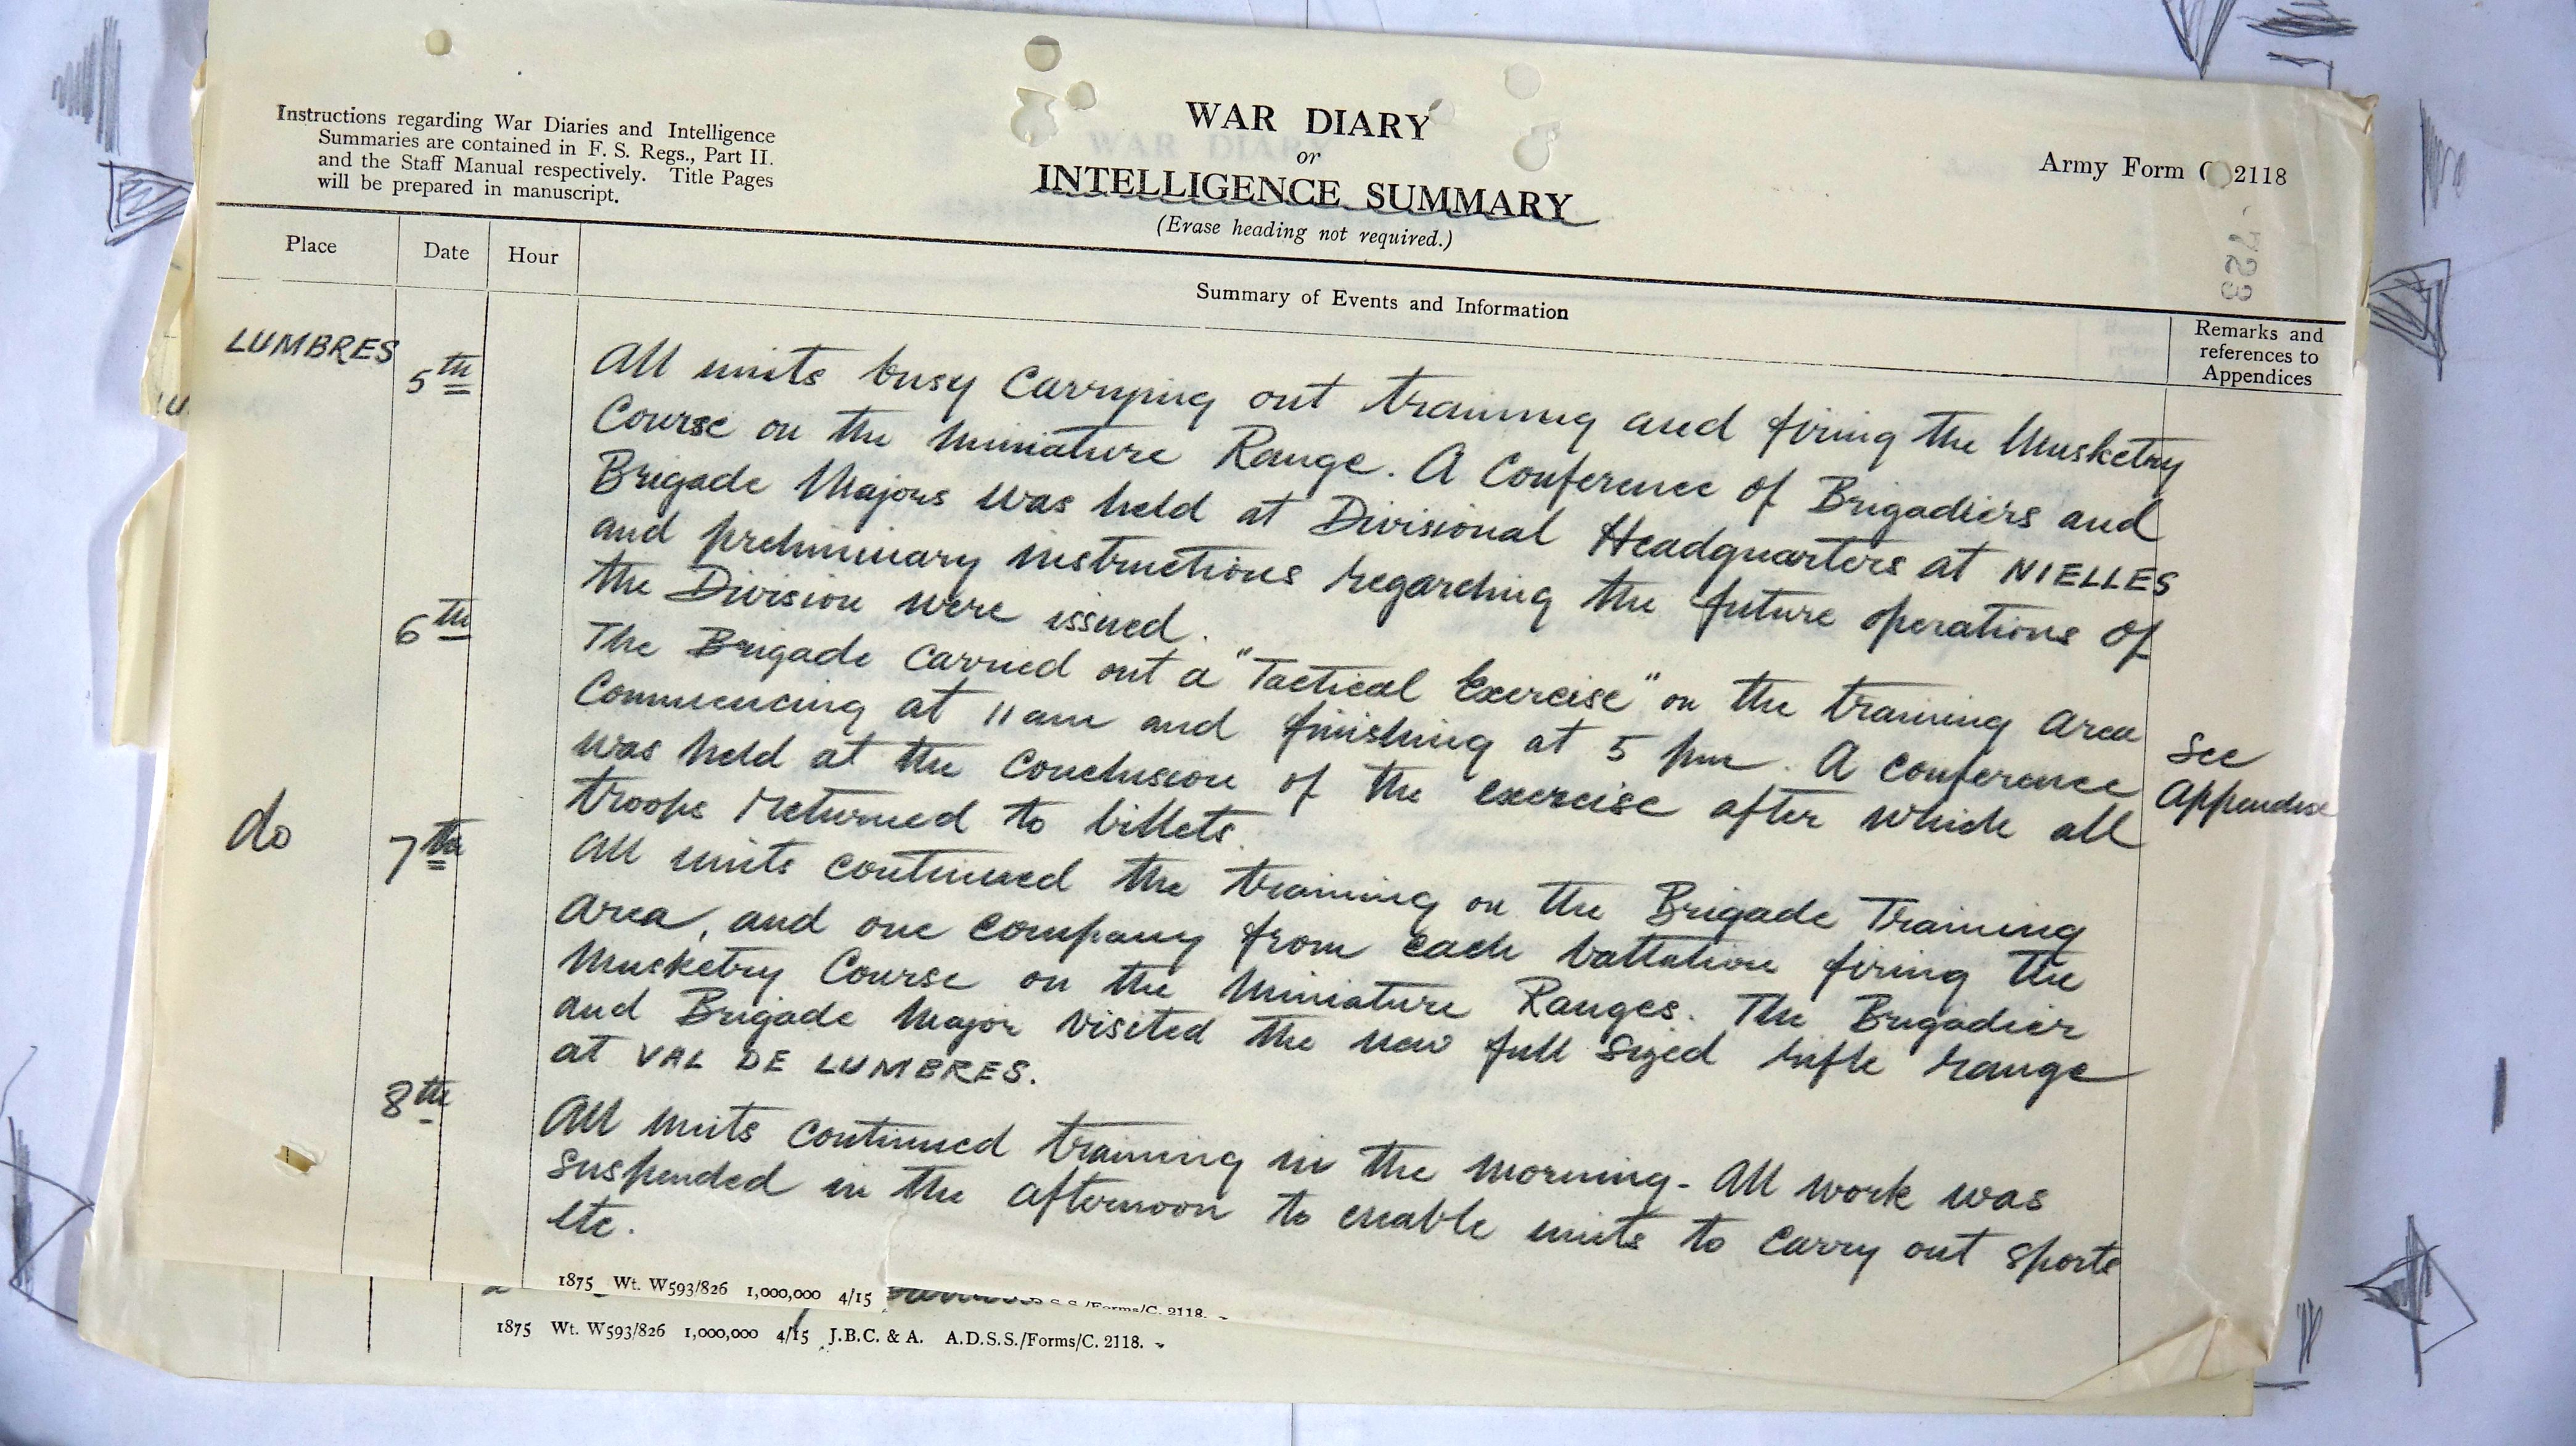 Instructions regarding War Diaries and Intelligence
Summaries are contained in F. S. Regs., Part II.
and the Staff Manual respectively. Title Pages
will be prepared in manuscript.
WAR DIARY
or
INTELLIGENCE SUMMARY
(Erase heading not required.)
Army Form C 2118
Place
Date
Hour
Summary of Events and Information
Remarks and
references to
Appendices
LUMBRES
5th
All units busy carrying out training and firing the Musketry
Course on the Miniature Range. A Conference of Brigadiers and
Brigade Majors was held at Divisional Headquarters at NIELLES
and preliminary instructions regarding the future operations of
the Division were issued.
6th
The Brigade carried out a "Tactical Exercise" on the training area
commencing at 11 am and finishing at 5 pm. A conference
was held at the conclusion of the exercise after which all
troops returned to billets.
See
Appendix
do
7th
All units continued the training on the Brigade Training
Area, and one company from each battalion firing the
Musketry Course on the Miniature Ranges. The Brigadier
and Brigade Major visited the new full sized rifle range
at VAL DE LUMBRES.
8th
All units continued training in the morning - All work was
suspended in the afternoon to enable units to carry out sports
etc.
1875 Wt. W593/826 1,000,000 4/15
S.S./Forms/C. 2118.
1875 Wt. W593/826 1,000,000 4/15 J.B.C. & A. A.D.S.S./Forms/C. 2118.